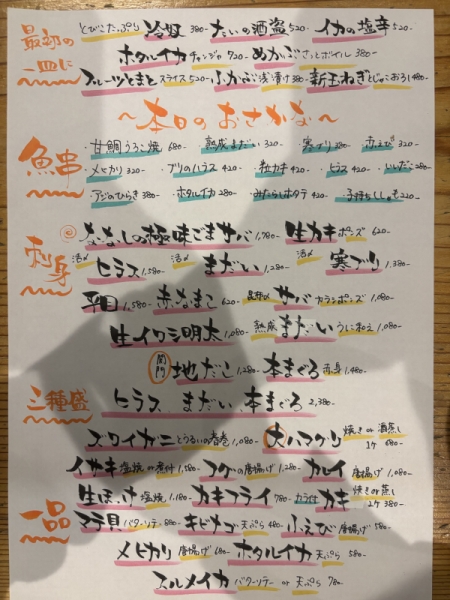 最初の一皿に
とびこたっぷり 冷奴 380- たいの酒盗 520- イカの塩辛 520-
ホタルイカ チャンジャ 720- めかぶ さっとボイル 380-
フルーツとまと スライス 520- ふかぶ 浅漬け 380- 新玉ねぎ とじゃこおろし 480-
〜本日のおさかな〜
魚串
・甘鯛うろこ焼 680- ・熟成まだい 320- ・寒ブリ 380- ・赤えび 320-
・メヒカリ 320- ・ブリのハラス 420- ・粒カキ 420- ・ヒラス 420- ・いいだこ 280-
・アジのひらき 380- ・ホタルイカ 280- ・みたらしホタテ 420- ・子持ちししゃも 220-
刺身
ななしの極味ごまサバ 1,780- 生カキ ポンズ 620-
活〆 ヒラス 1,580- 活〆 まだい 1,280- 活〆 寒ブリ 1,380-
平目 1,580- 赤なまこ 620- サバ カラシポンズ 1,080-
生イワシ明太 1,080- 熟成 まだい うに和え 1,080-
関門 地だこ 1,280- 本まぐろ 赤身 1,480-
三種盛
ヒラス まだい 本まぐろ 2,380-
一品
ズワイカニ とうるいの春巻 1,080- 大ハマグリ 焼き or 酒蒸し 1ケ 680-
イサキ 塩焼 or 煮付 1,580- フグの唐揚げ 1,280- カレイ 唐揚げ 1,080-
生ほっけ 塩焼 1,180- カキフライ 780- カラ付 カキ 焼き or 蒸し 2ケ 380-
マテ貝 バターソテー 880- キビナゴ 天ぷら 480- ふえび 唐揚げ 580-
メヒカリ 唐揚げ 680- ホタルイカ 天ぷら 580-
スルメイカ バターソテー or 天ぷら 780-